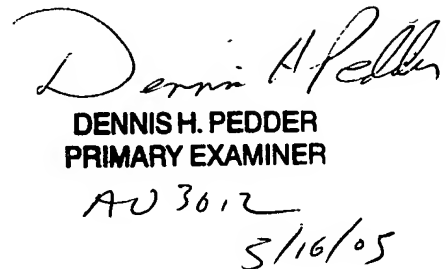 Dennis H Pedder
DENNIS H. PEDDER
PRIMARY EXAMINER
AU 3612
3/16/05